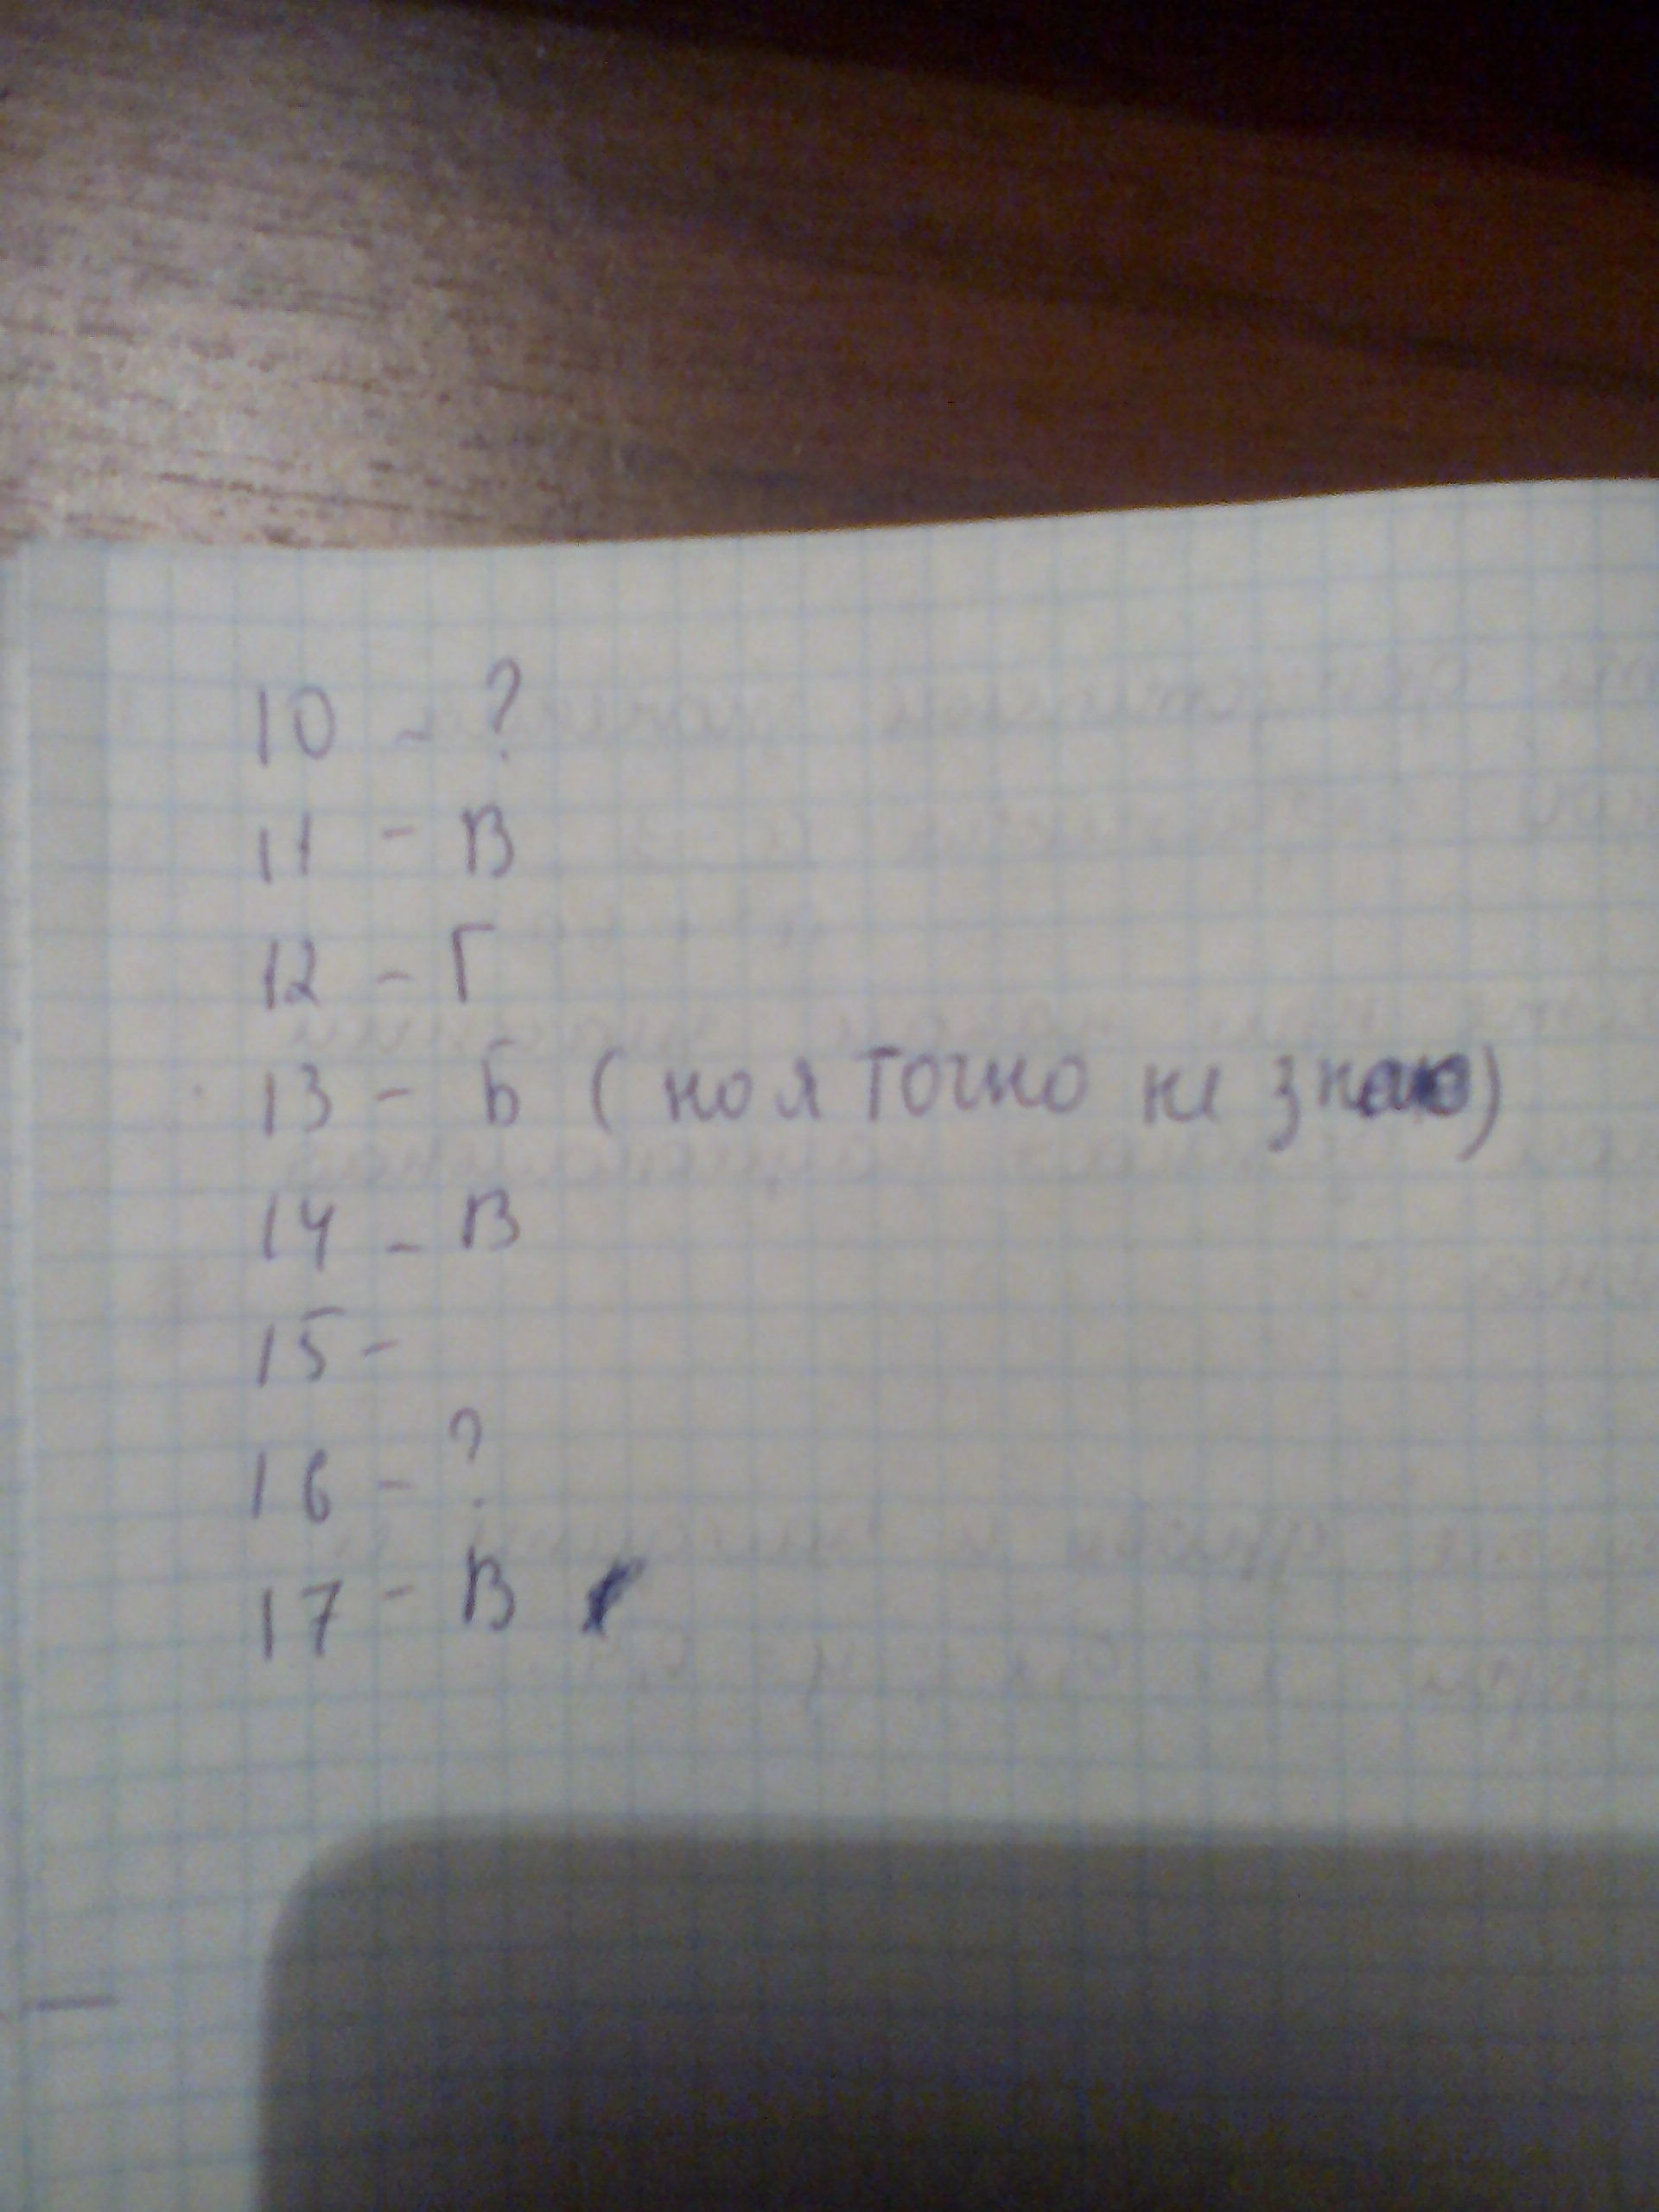 10 - ?
11 - В
12 - Г
13 - Б ( но я точно не знаю)
14 - В
15 -
16 - ?
17 - В